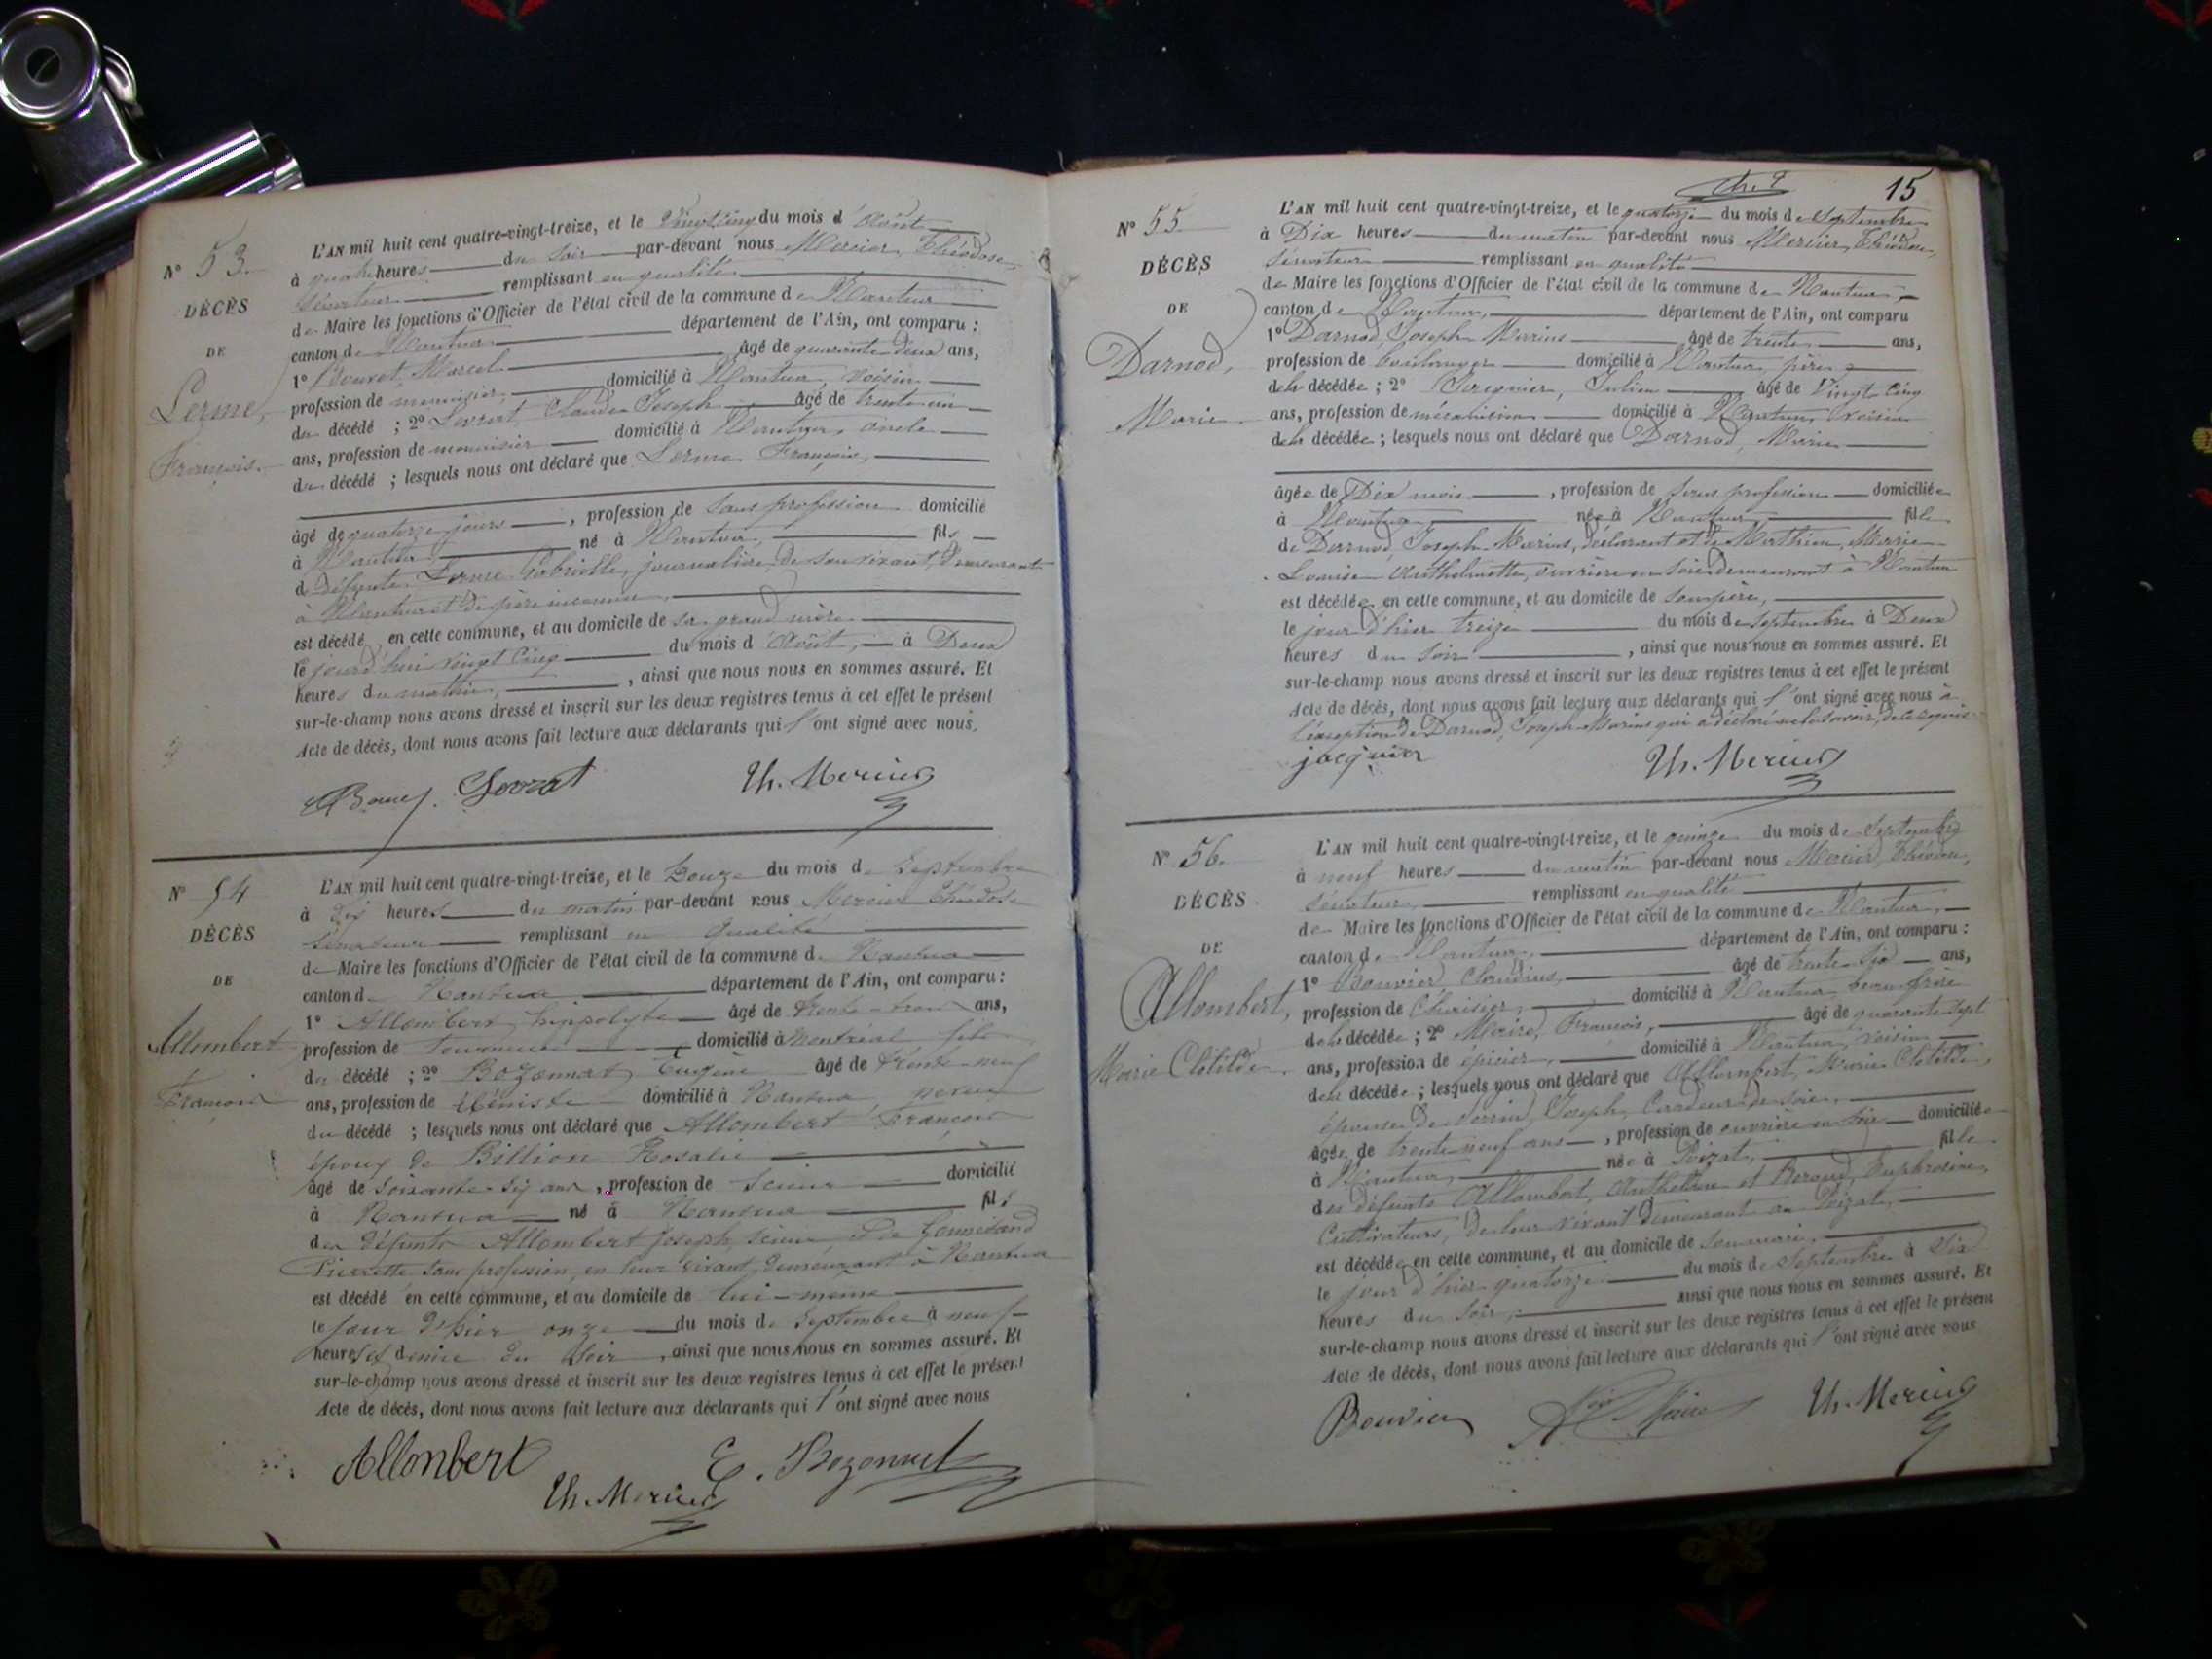 N° 53.
DÉCÈS
DE
Lerme,
François.
L'AN mil huit cent quatre-vingt-treize, et le Vingt cinq du mois d'Août
à quatre heures du soir par-devant nous Mercier, Théodose,
Sénateur remplissant en qualité
de Maire les fonctions d'Officier de l'état civil de la commune de Nantua
canton de Nantua département de l'Ain, ont comparu :
1° Marcel âgé de quarante deux ans,
profession de menuisier, domicilié à Nantua, voisin
du décédé ; 2° Levrat, Claude Joseph âgé de trente un
ans, profession de menuisier domicilié à Nantua, oncle
du décédé ; lesquels nous ont déclaré que Lerme François,
âgé de quatorze jours , profession de sans profession domicilié
à Nantua, né à Nantua, fils
de défunte Lerme Gabrielle, journalière, de son vivant, demeurant
à Nantua et de père inconnu,
est décédé en cette commune, et au domicile de sa grand mère
le jourd'hui vingt cinq du mois d'Août, à Deux
heures du matin, , ainsi que nous nous en sommes assuré. Et
sur-le-champ nous avons dressé et inscrit sur les deux registres tenus à cet effet le présent
Acte de décès, dont nous avons fait lecture aux déclarants qui l'ont signé avec nous.
Levrat Th. Mercier
N° 54
DÉCÈS
DE
Allombert
François
L'AN mil huit cent quatre-vingt-treize, et le Douze du mois de Septembre
à dix heures du matin par-devant nous Mercier Théodose
Sénateur remplissant en qualité
de Maire les fonctions d'Officier de l'état civil de la commune de Nantua
canton de Nantua département de l'Ain, ont comparu :
1° Allombert, hippolyte âgé de trente-trois ans,
profession de tourneur domicilié à Montréal fils
du décédé ; 2° Bozonnet, Eugène âgé de trente-neuf
ans, profession de Ebéniste domicilié à Nantua neveu
du décédé ; lesquels nous ont déclaré que Allombert François
époux de Billion Rosalie
âgé de soixante-six ans , profession de Scieur domicilié
à Nantua né à Nantua fils
des défunts Allombert Joseph, Scieur, De
Pierrette sans profession, en leur vivant, demeurant à Nantua
est décédé en cette commune, et au domicile de lui-même
le jour d'hier onze du mois de Septembre à neuf
heures et demie du soir , ainsi que nous nous en sommes assuré. Et
sur-le-champ nous avons dressé et inscrit sur les deux registres tenus à cet effet le présent
Acte de décès, dont nous avons fait lecture aux déclarants qui l'ont signé avec nous
Allombert E. Bozonnet
Th. Mercier
15
N° 55
DÉCÈS
DE
Darnod,
Marie
L'AN mil huit cent quatre-vingt-treize, et le quatorze du mois de Septembre
à Dix heures du matin par-devant nous Mercier, Théodose,
Sénateur remplissant en qualité
de Maire les fonctions d'Officier de l'état civil de la commune de Nantua,
canton de Nantua, département de l'Ain, ont comparu
1° Darnod, Joseph Marius âgé de trente ans,
profession de boulanger domicilié à Nantua, père
de la décédée ; 2° Julien âgé de Vingt cinq
ans, profession de mécanicien domicilié à Nantua, voisin
de la décédée ; lesquels nous ont déclaré que Darnod, Marie
âgée de Dix mois , profession de sans profession domiciliée
à Nantua née à Nantua fille
de Darnod, Joseph Marius, déclarant et de Mathieu, Marie
Louise Anthelmette, ouvrière en soie demeurant à Nantua
est décédée en cette commune, et au domicile de son père,
le jour d'hier treize du mois de Septembre à Deux
heures du soir , ainsi que nous nous en sommes assuré. Et
sur-le-champ nous avons dressé et inscrit sur les deux registres tenus à cet effet le présent
Acte de décès, dont nous avons fait lecture aux déclarants qui l'ont signé avec nous à
l'exception de Darnod, Joseph Marius qui a déclaré ne le savoir, de ce requis
jacquier Th. Mercier
N° 56.
DÉCÈS
DE
Allombert,
Marie Clotilde.
L'AN mil huit cent quatre-vingt-treize, et le quinze du mois de Septembre
à neuf heures du matin par-devant nous Mercier, Théodose,
Sénateur, remplissant en qualité
de Maire les fonctions d'Officier de l'état civil de la commune de Nantua,
canton de Nantua, département de l'Ain, ont comparu :
1° Bouvier, Claudius, âgé de trente six ans,
profession de domicilié à Nantua, beau frère
de la décédée ; 2° Maire, François, âgé de quarante sept
ans, profession de épicier, domicilié à Nantua, voisin
de la décédée ; lesquels nous ont déclaré que Allombert, Marie Clotilde,
épouse de Joseph, Cardeur de soie,
âgée de trente neuf ans , profession de ouvrière en soie domiciliée
à Nantua, née à Poizat, fille
des défunts Allombert, Anthelme et Beroud, Euphrosine,
Cultivateurs, de leur vivant demeurant au Poizat,
est décédée en cette commune, et au domicile de son mari,
le jour d'hier quatorze du mois de Septembre à Six
heures du soir, ainsi que nous nous en sommes assuré. Et
sur-le-champ nous avons dressé et inscrit sur les deux registres tenus à cet effet le présent
Acte de décès, dont nous avons fait lecture aux déclarants qui l'ont signé avec nous
Bouvier Maire Th. Mercier